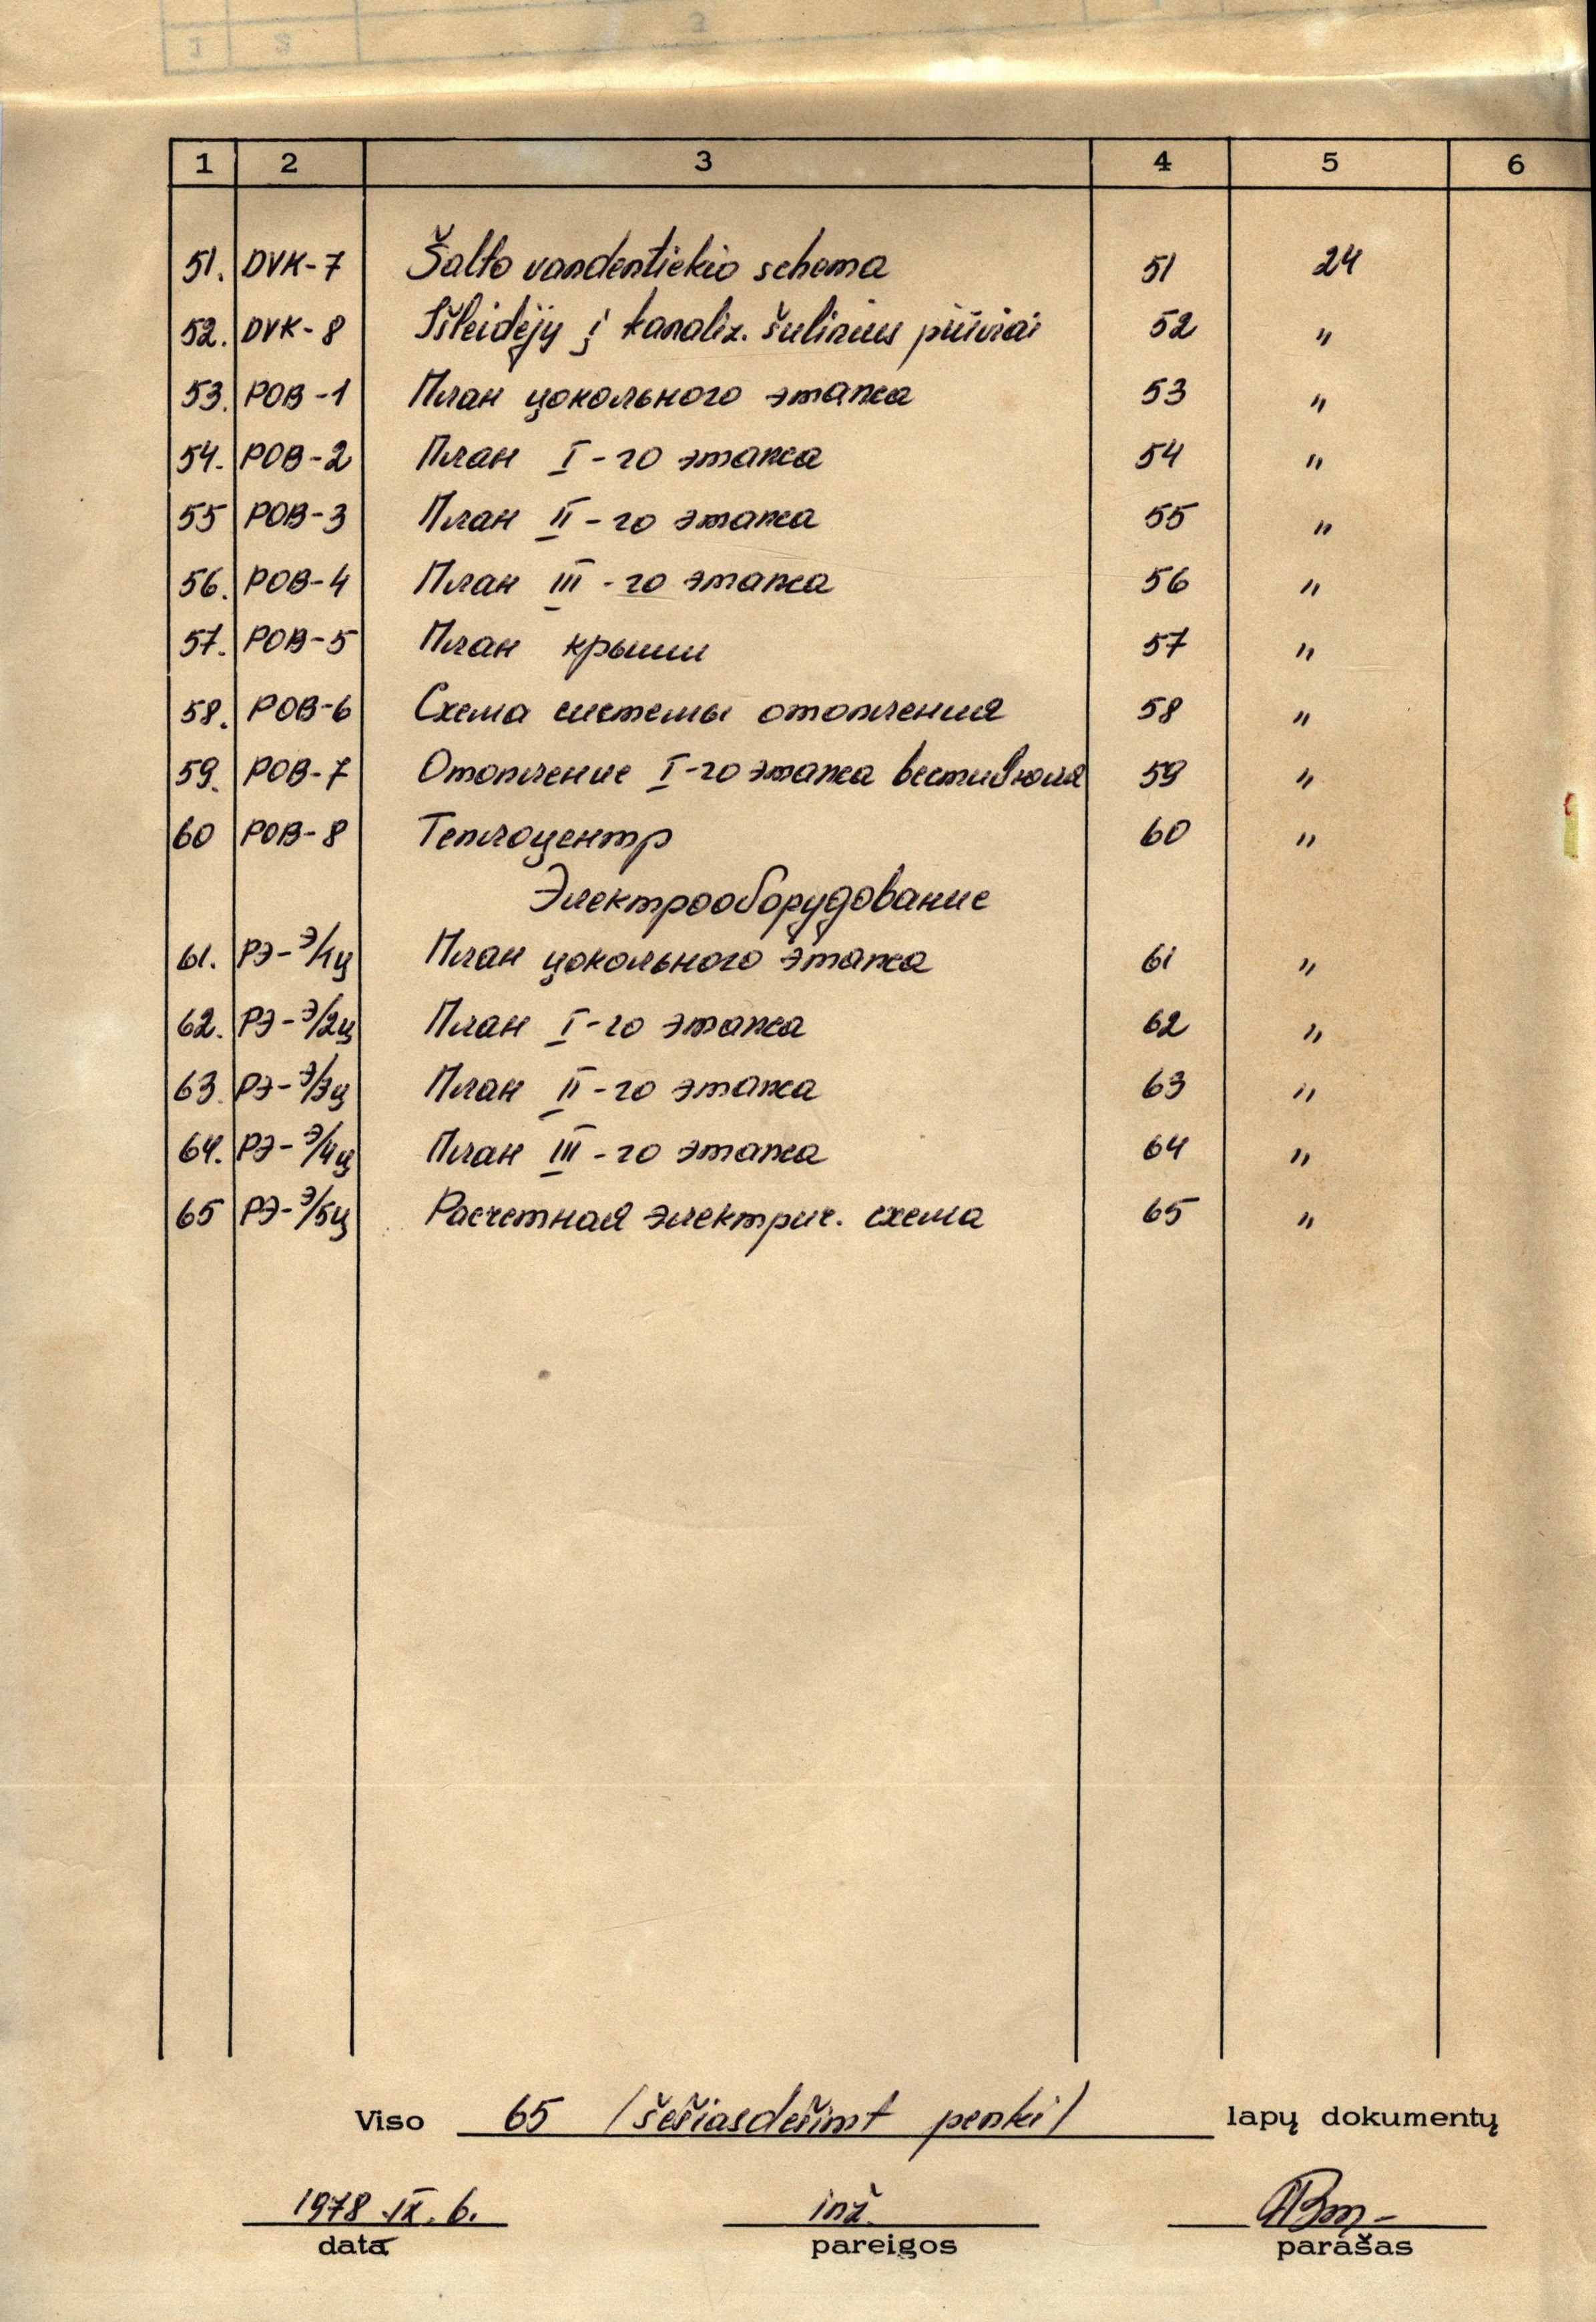 1 2 3 4 5 6
51. DVK-7 Šalto vandentiekio schema 51 24
52. DVK-8 Išleidėjų į kanaliz. šulinius pjūviai 52 "
53. РОВ-1 План цокольного этажа 53 "
54. РОВ-2 План I-го этажа 54 "
55 РОВ-3 План II-го этажа 55 "
56. РОВ-4 План III-го этажа 56 "
57. РОВ-5 План крыши 57 "
58. РОВ-6 Схема системы отопления 58 "
59. РОВ-7 Отопление I-го этажа вестибюля 59 "
60 РОВ-8 Теплоцентр 60 "
Электрооборудование
61. РЭ-Э/1ц План цокольного этажа 61 "
62. РЭ-Э/2ц План I-го этажа 62 "
63. РЭ-Э/3ц План II-го этажа 63 "
64. РЭ-Э/4ц План III-го этажа 64 "
65 РЭ-Э/5ц Расчетная электрич. схема 65 "
Viso 65 /šešiasdešimt penki/ lapų dokumentų
1978.IX.6. inž.
data pareigos parašas